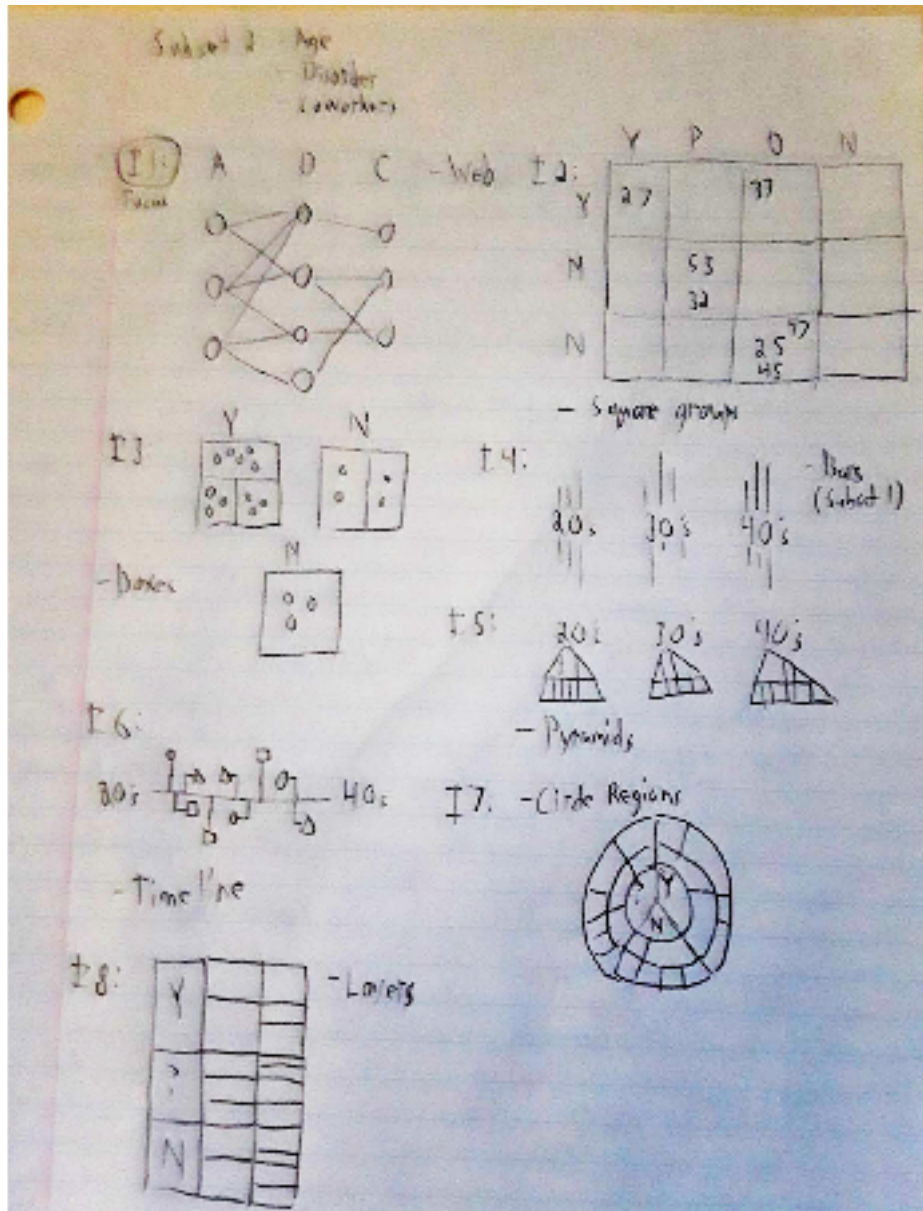 Subset 2 - Age
- Disorder
- Coworkers
I1: A D C - Web
Focus
I2: Y P O N
Y 27 37
N 53
32
N 47
25
45
- Square groups
I3 Y N
N
- Boxes
I4: - Bars
(Subset 1)
20's 30's 40's
I5: 20's 30's 40's
- Pyramids
I6:
20's 40's
- Timeline
I7: - Circle Regions
Y
N
I8: - Layers
Y
?
N